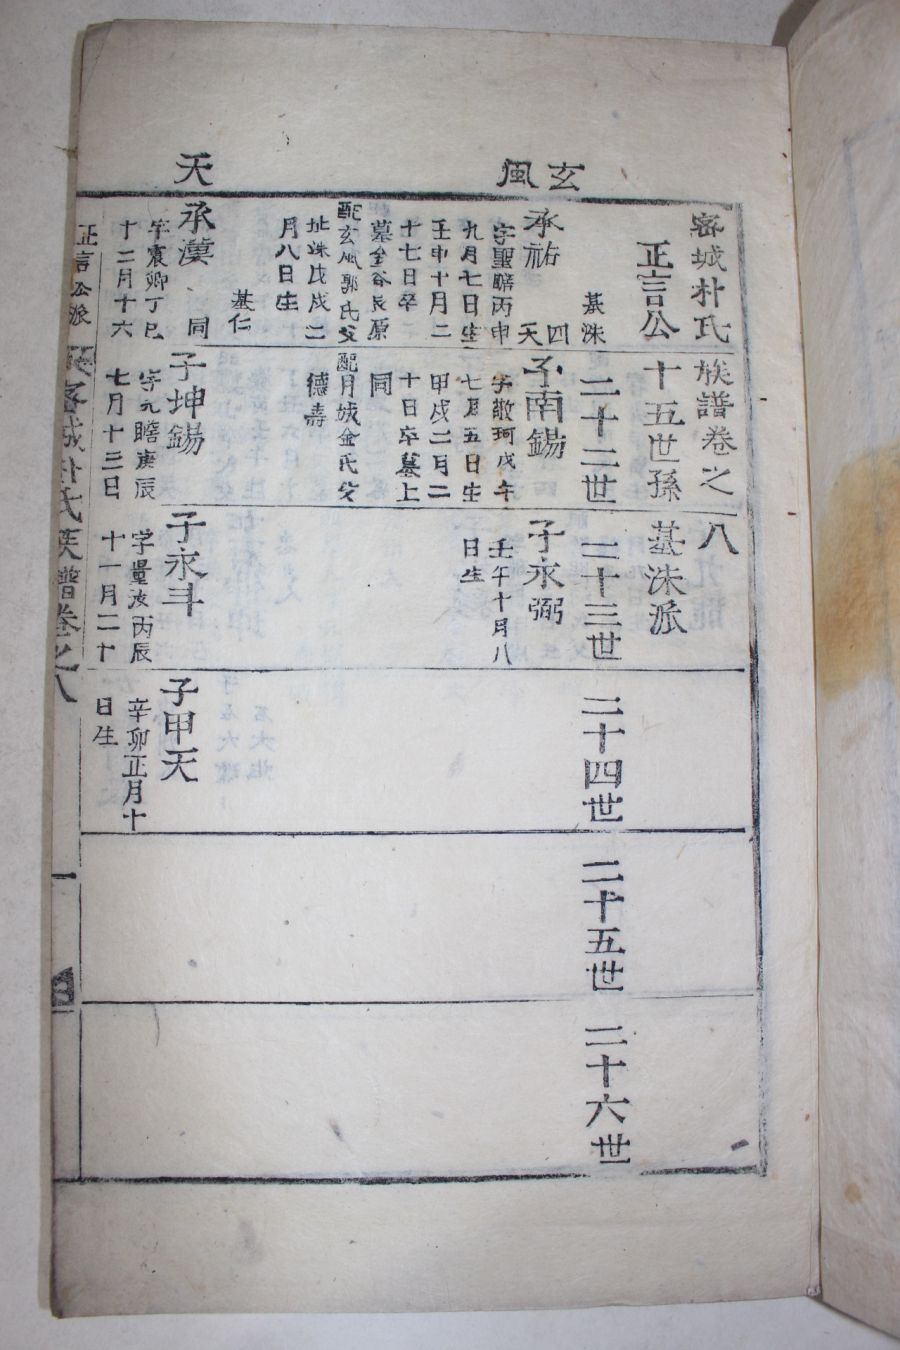 玄風
天
密城朴氏族譜卷之八
正言公十五世孫基洙派
基洙
二十二世
二十三世
二十四世
二十五世
二十六世
承祐
四
天
字聖瞻丙申
九月七日生
壬申十月二
十七日卒
墓金谷辰原
配玄風郭氏父
址洙戊戌二
月八日生
子南錫
字敬珂戊午
七月五日生
甲戌二月二
十日卒墓上
同
配月城金氏父
德壽
子永弼
壬午十月八
日生
基仁
承漢
同
字震卿丁巳
十二月十六
子坤錫
字九瞻庚辰
七月十三日
子永斗
丙辰
十一月二十
子甲天
辛卯正月十
日生
正言公派
密城朴氏族譜卷之八
一